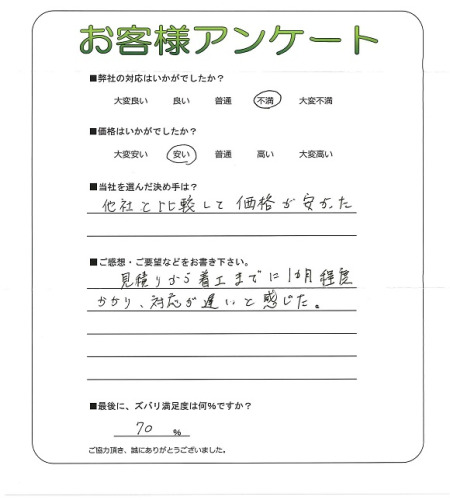 お客様アンケート
■弊社の対応はいかがでしたか？
大変良い 良い 普通 不満 大変不満
■価格はいかがでしたか？
大変安い 安い 普通 高い 大変高い
■当社を選んだ決め手は？
他社と比較して価格が安かった
■ご感想・ご要望などをお書き下さい。
見積りから着工までに1ヵ月程度
かかり、対応が遅いと感じた。
■最後に、ズバリ満足度は何％ですか？
70 ％
ご協力頂き、誠にありがとうございました。